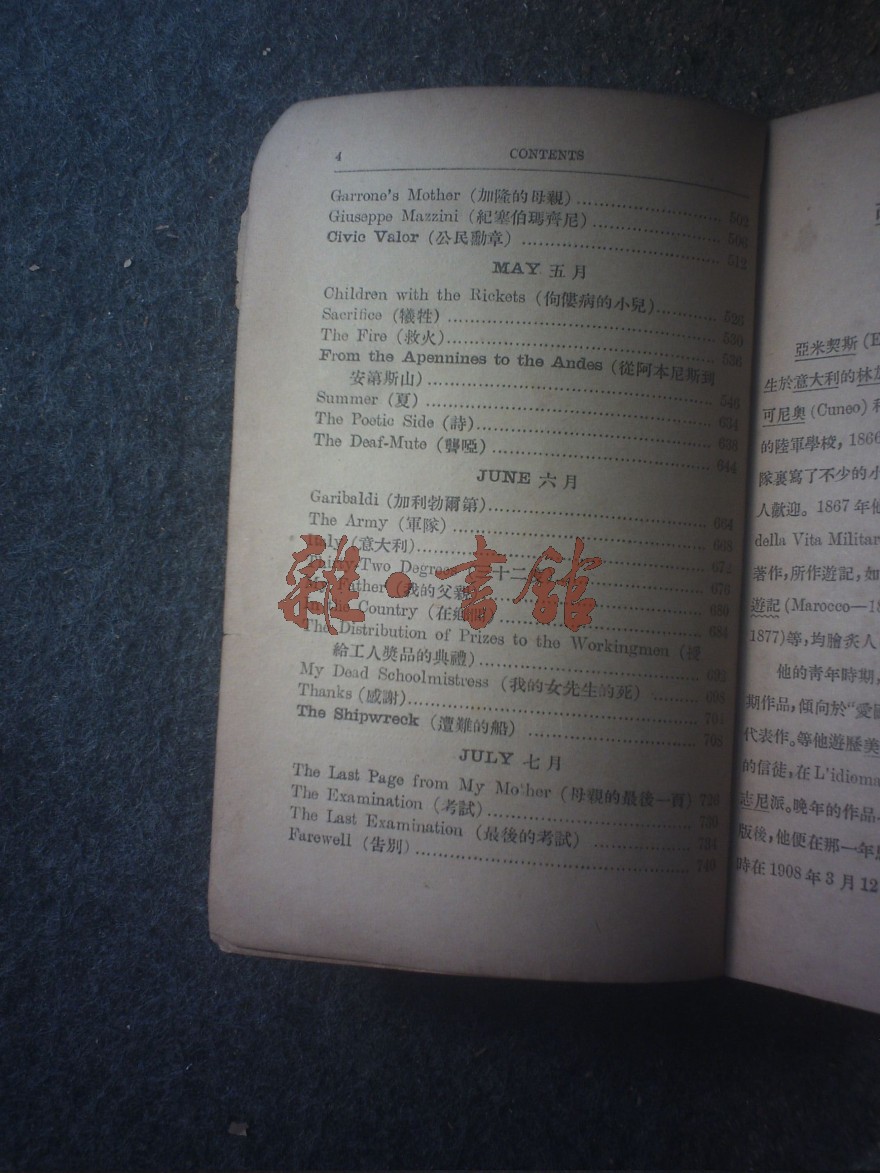 4 CONTENTS
Garrone's Mother (加隆的母親) 502
Giuseppe Mazzini (紀塞伯瑪齊尼) 506
Civic Valor (公民勳章) 512
MAY 五月
Children with the Rickets (佝僂病的小兒) 526
Sacrifice (犧牲) 530
The Fire (救火) 536
From the Apennines to the Andes (從阿本尼斯到
安第斯山) 546
Summer (夏) 634
The Poetic Side (詩) 638
The Deaf-Mute (聾啞) 644
JUNE 六月
Garibaldi (加利勃爾第) 664
The Army (軍隊) 668
Italy (意大利) 672
Thirty-Two Degrees 十二 676
My Father (我的父親) 680
In the Country (在鄉間) 684
The Distribution of Prizes to the Workingmen (授
給工人獎品的典禮) 692
My Dead Schoolmistress (我的女先生的死) 698
Thanks (感謝) 704
The Shipwreck (遭難的船) 708
JULY 七月
The Last Page from My Mother (母親的最後一頁) 726
The Examination (考試) 730
The Last Examination (最後的考試) 734
Farewell (告別) 740
雜·書館
亞米契斯 (E
生於意大利的林
可尼奧 (Cuneo) 和
的陸軍學校, 1866
隊裏寫了不少的小
人歡迎。1867年他
della Vita Militar
著作,所作遊記,如
遊記 (Marocco—18
1877)等,均膾炙人
他的青年時期,
期作品,傾向於“愛國
代表作。等他遊歷美
的信徒,在 L'idioma
志尼派。晚年的作品
版後,他便在那一年
時在 1908 年 3 月 12